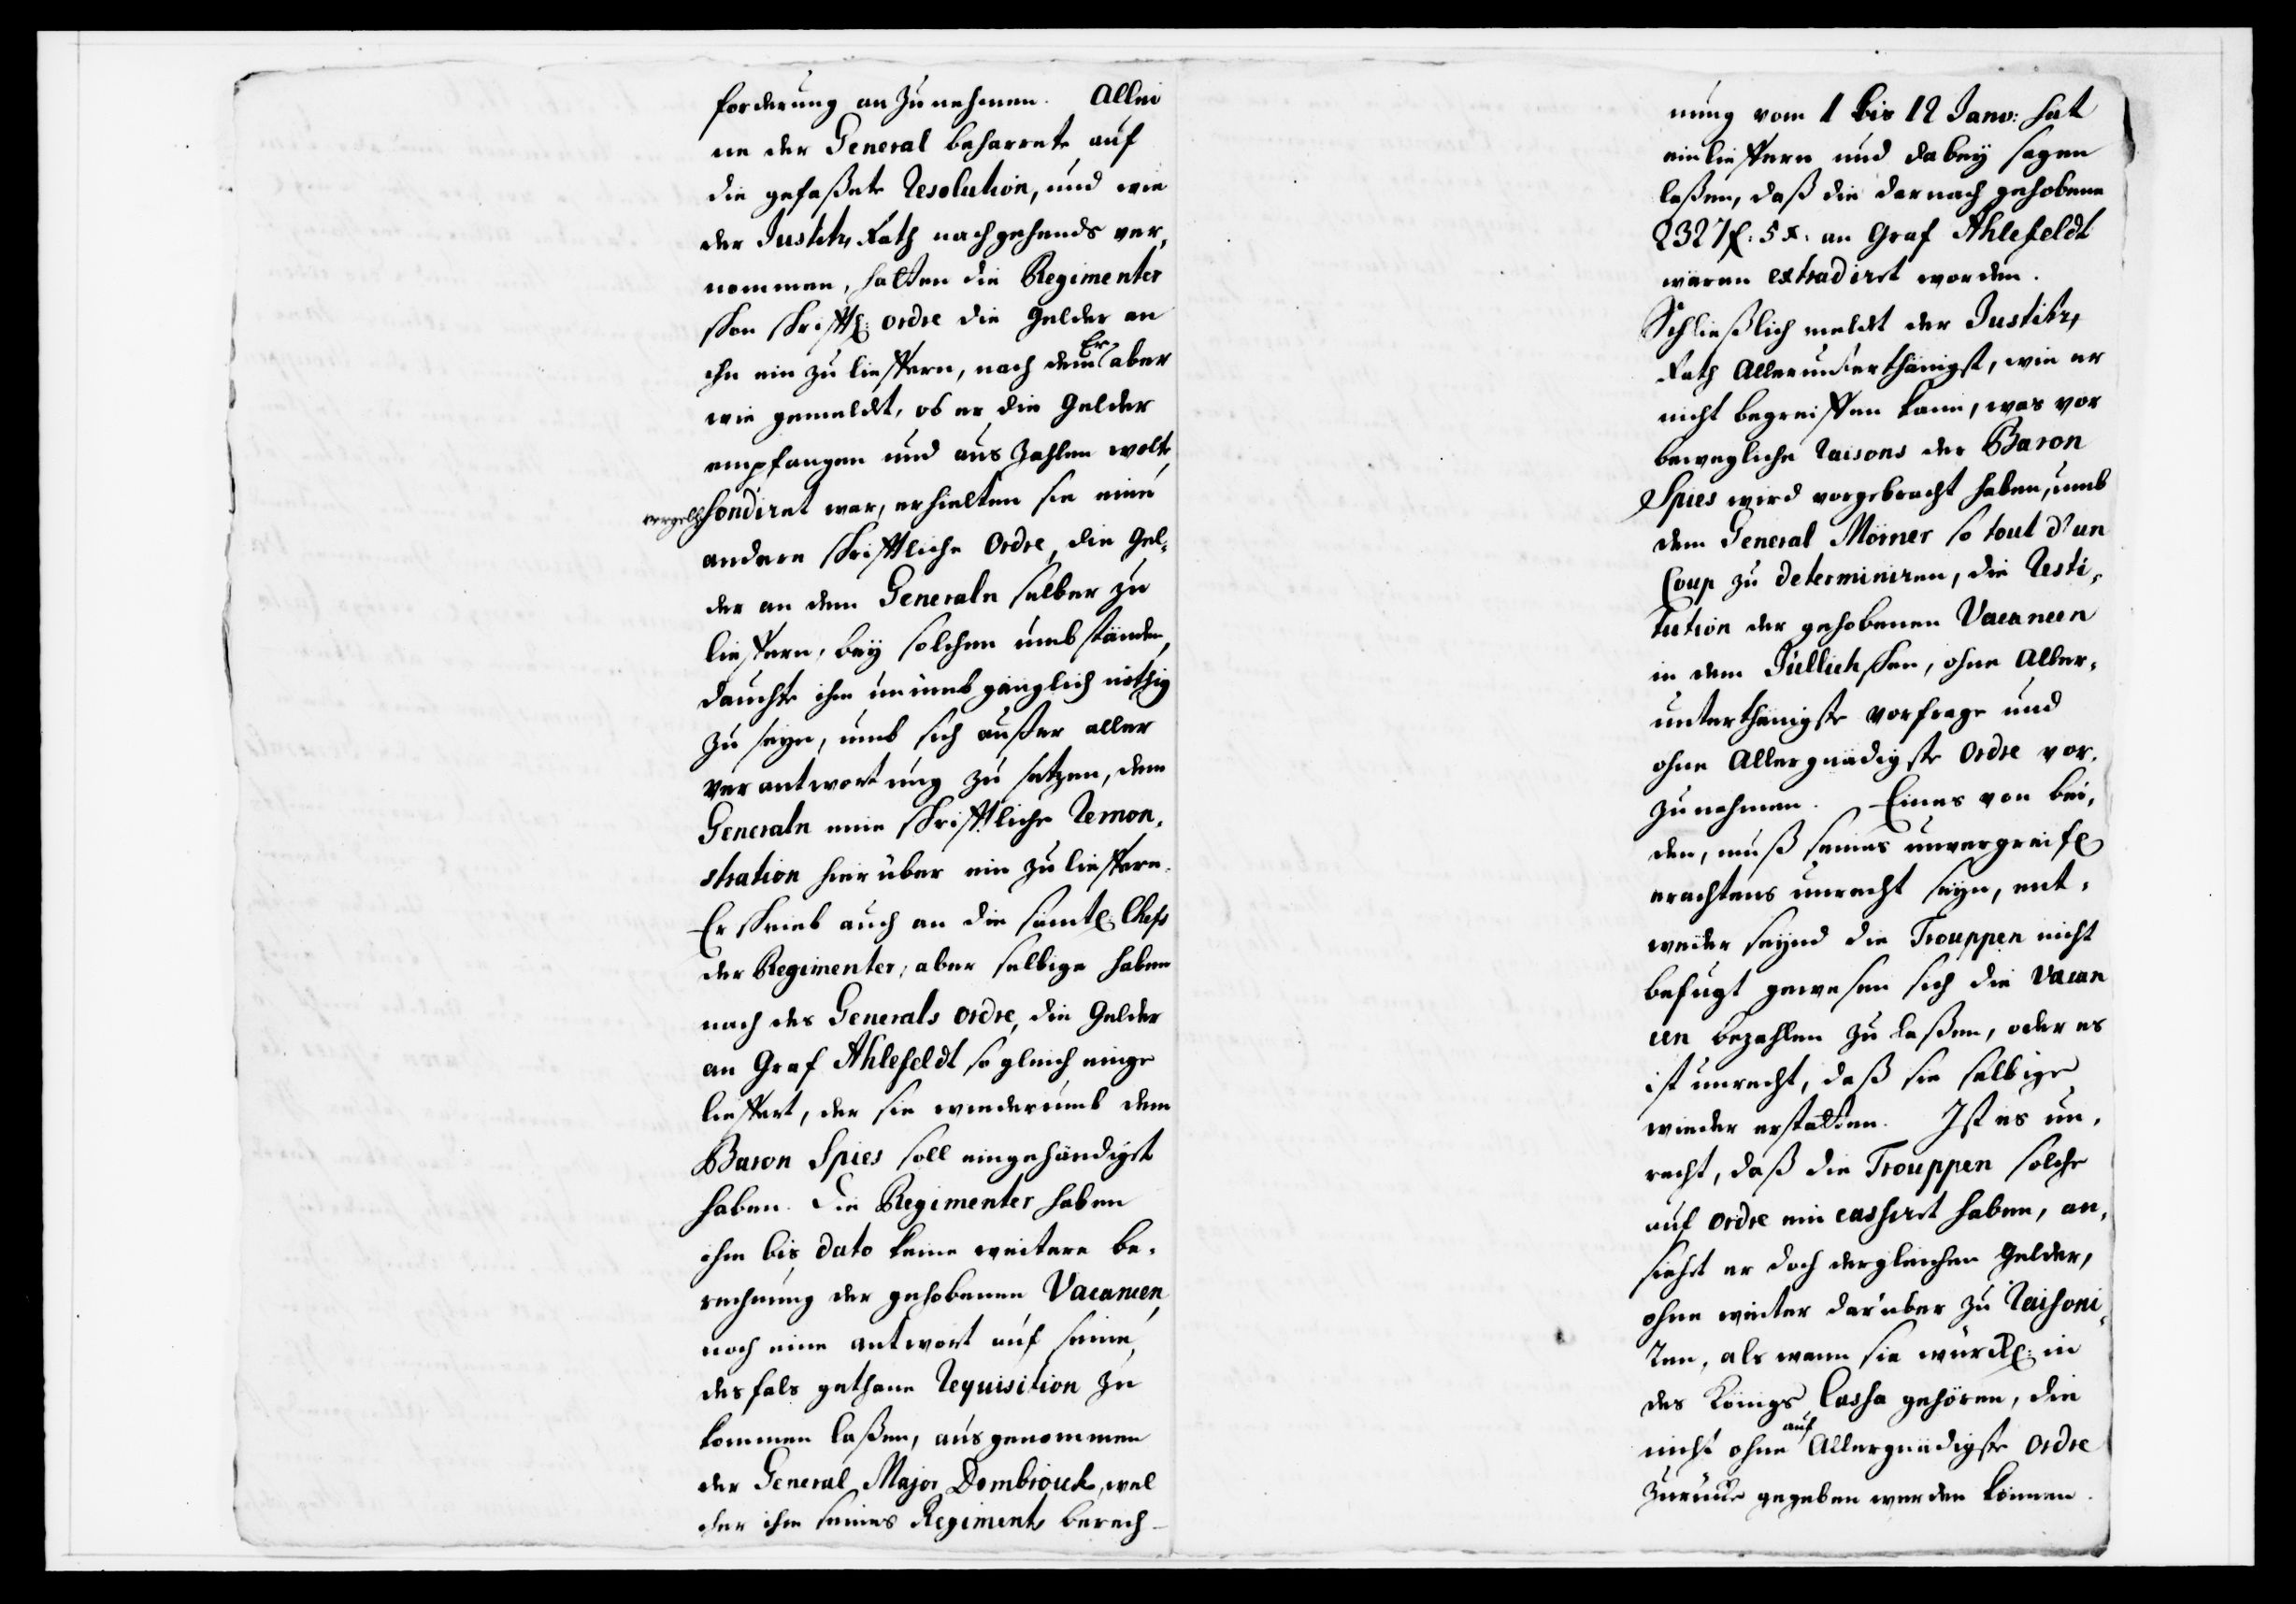 forderung an zu nehmen. Allei
ne der General beharrete auf
die gefaßete Resolution, und wie
der Justitz, Rath nachgehends ver,
nommen, hatten die Regimenter
schon schrifftl: ordre die Gelder an
ihn ein zu lieffern, nach dem Er aber
wie gemeldt, ob er die Gelder
empfangen und aus zahlen wolte,
vergebl: sondiret war, erhielten sie eine
andere schrifftliche Ordre, die Gel,
der an dem Generaln selber zu
lieffern, bey solchen umbständen,
dauchte ihm unumbgänglich nöthig
zu seyn, umb sich außer aller
verantwortung zu setzen, dem
Generaln eine schrifftliche Remon,
stration hierüber ein zu lieffern.
Er schrieb auch an die sämtl: Chefs
der Regimenter, aber selbige haben
nach des Generals ordre, die Gelder
an Graf Ahlefeldt so gleich einge
lieffert, der sie wiederumb dem
Baron Spies soll eingehändiget
haben. Die Regimenter haben
ihm bis dato keine weitere be,
rechnung der gehobenen Vacancen,
noch eine antwort auf seine,
desfals gethane Requisition zu
kommen laßen, ausgenommen
der General Major Dombrouck, wel
cher ihm seines Regiments berech-
nung vom 1 bis 12 Janv: hat
einlieffern und dabey sagen
laßen, daß die darnach gehobene
2327 f: 5 x: an Graf Ahlefeldt
wären extradiret worden.
Schließlich meldt der Justitz,
Rath Allerunterthänigst, wie er
nicht begreiffen kann, was vor
bewegliche raisons der Baron
Spies wird vorgebracht haben, umb
dem General Mörner so tout d'un
Coup zu determiniren, die Resti,
tution der gehobenen Vacancen
in dem Jüllichschen, ohne Aller,
unterthänigste vorfrage und
ohne Allergnädigste Ordre vor,
zunehmen. Eines von bei,
den, muß seines unvergreifl
erachtens unrecht seyn, ent,
weder seynd die Trouppen nicht
befugt gewesen sich die Vacan
cen bezahlen zu laßen, oder es
ist unrecht, daß sie selbige
wieder erstatten. Ist es un,
recht, daß die Trouppen solche
auf ordre ein cassiret haben, an,
siehet er doch dergleichen Gelder,
ohne weiter darüber zu raisoni,
ren, als wann sie würckl: in
des Königs Cassa gehören, die
nicht ohne auf Allergnädigste Ordre
zurücke gegeben werden können.